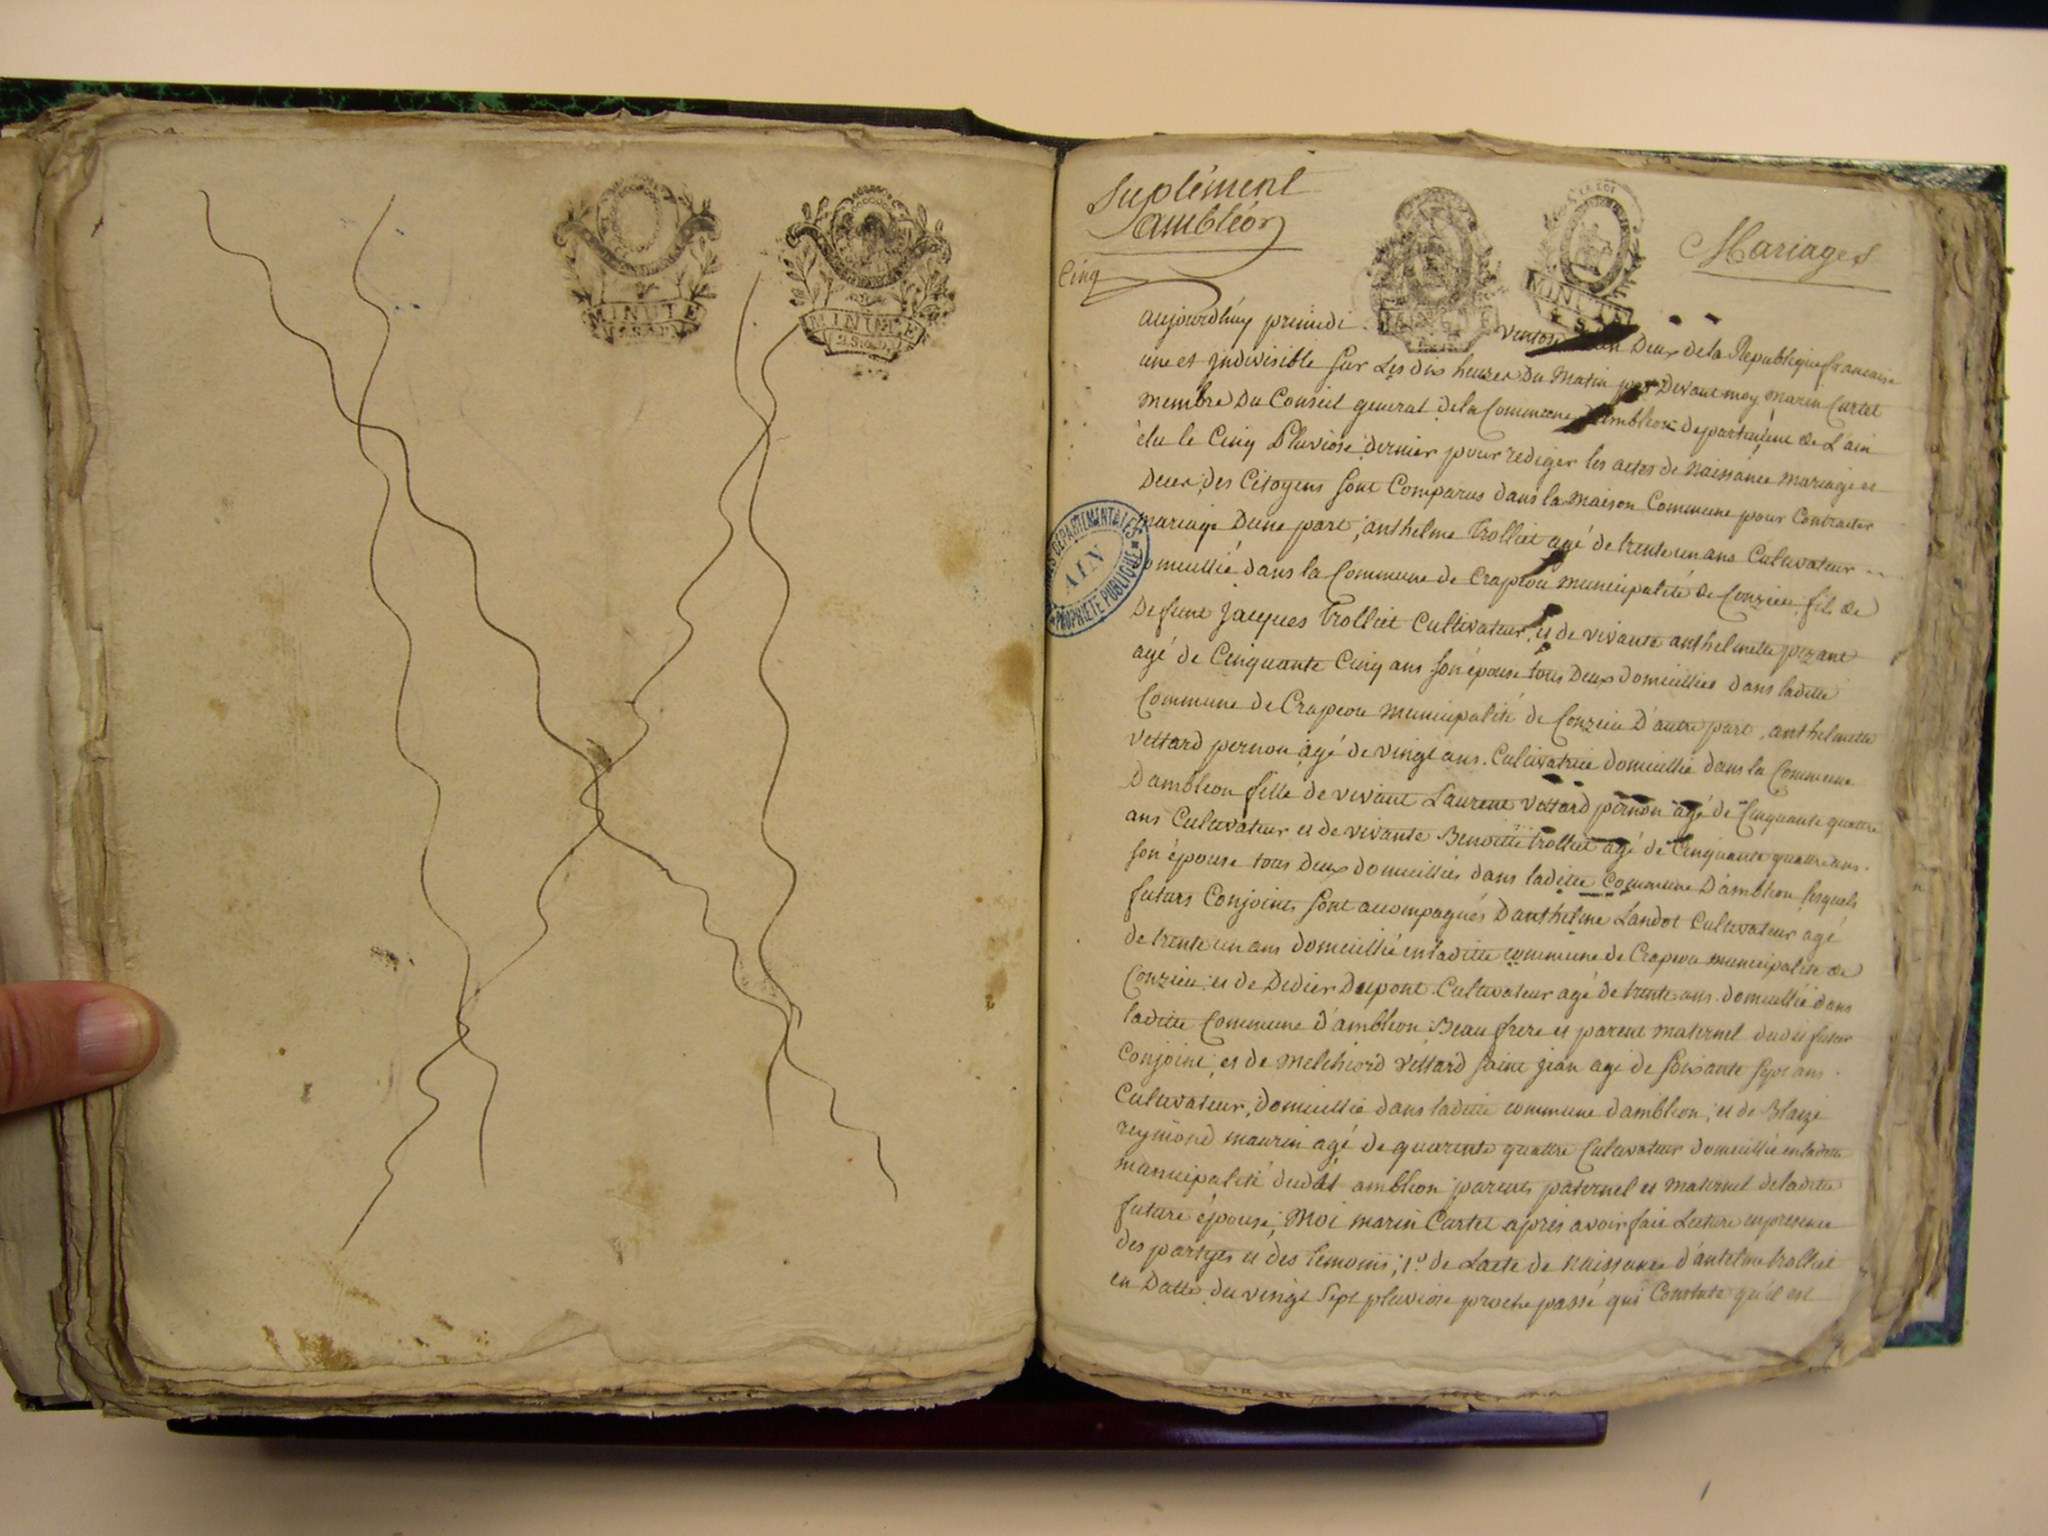 MINUTE
MINUTE
2.S.6.D.
Suplément
ambléon
Mariages
Cinq
MINUTE
aujourdhuy primidi ventose Deux de la Republique francaise
une et jndivisible sur Les dix heures Du Matin par Devant moy marin Cartel
membre Du Conseil general de la Commune d'ambleon departement de L'ain
élu le Cinq Pluviose dernier pour rediger les actes de naissance mariage et
deces des Citoyens sont Comparus dans la maison Commune pour Contracter
mariage Dune part, anthelme trolliet agé de trente un ans Cultivateur
domicillié dans la Commune de Crapeou municipalité de Conzieu fils de
Defunt jacques trolliet Cultivateur, et de vivante anthelmette
agé de Cinquante Cinq ans son épouse tous Deux domicilliés dans laditte
Commune de Crapeou municipalité de Conzieu D'autre part, anthelmette
vettard pernon agé de vingt ans. Cultivatrice domicillié dans la Commune
D'ambleon fille de vivant Laurent vettard pernon agé de Cinquante quattre
ans Cultivateur et de vivante Benoitte trolliet agé de Cinquante quattre ans.
son épouse tous deux domicilliés dans laditte Commune D'ambleon lesquels
futurs Conjoints sont accompagnés D'anthelme Landot Cultivateur agé
de trente un ans domicillié en laditte commune de Crapeou municipalité de
Conzieu; et de Didier Dupont Cultivateur agé de trente ans domicillié dans
laditte Commune D'ambleon Beau frere et parent maternel dudit futur
Conjoint; et de Melchiord vettard saint jean agé de soixante sept ans.
Cultivateur, domicillié dans laditte commune d'ambleon; et de Blaize
reymond maurin agé de quarente quattre Cultivateur domicillié en laditte
municipalité dudit ambleon parents paternel et maternel deladitte
future épouse; Moi marin Cartel aprés avoir fait Lecture en presence
des partyes et des temoins; 1.º de Lacte de naissance d'antelme trolliet
en Datte du vingt Sept pluviose proche passé qui Constate qu'il est
ARCHIVES DEPARTEMENTALES
AIN
PROPRIÉTÉ PUBLIQUE